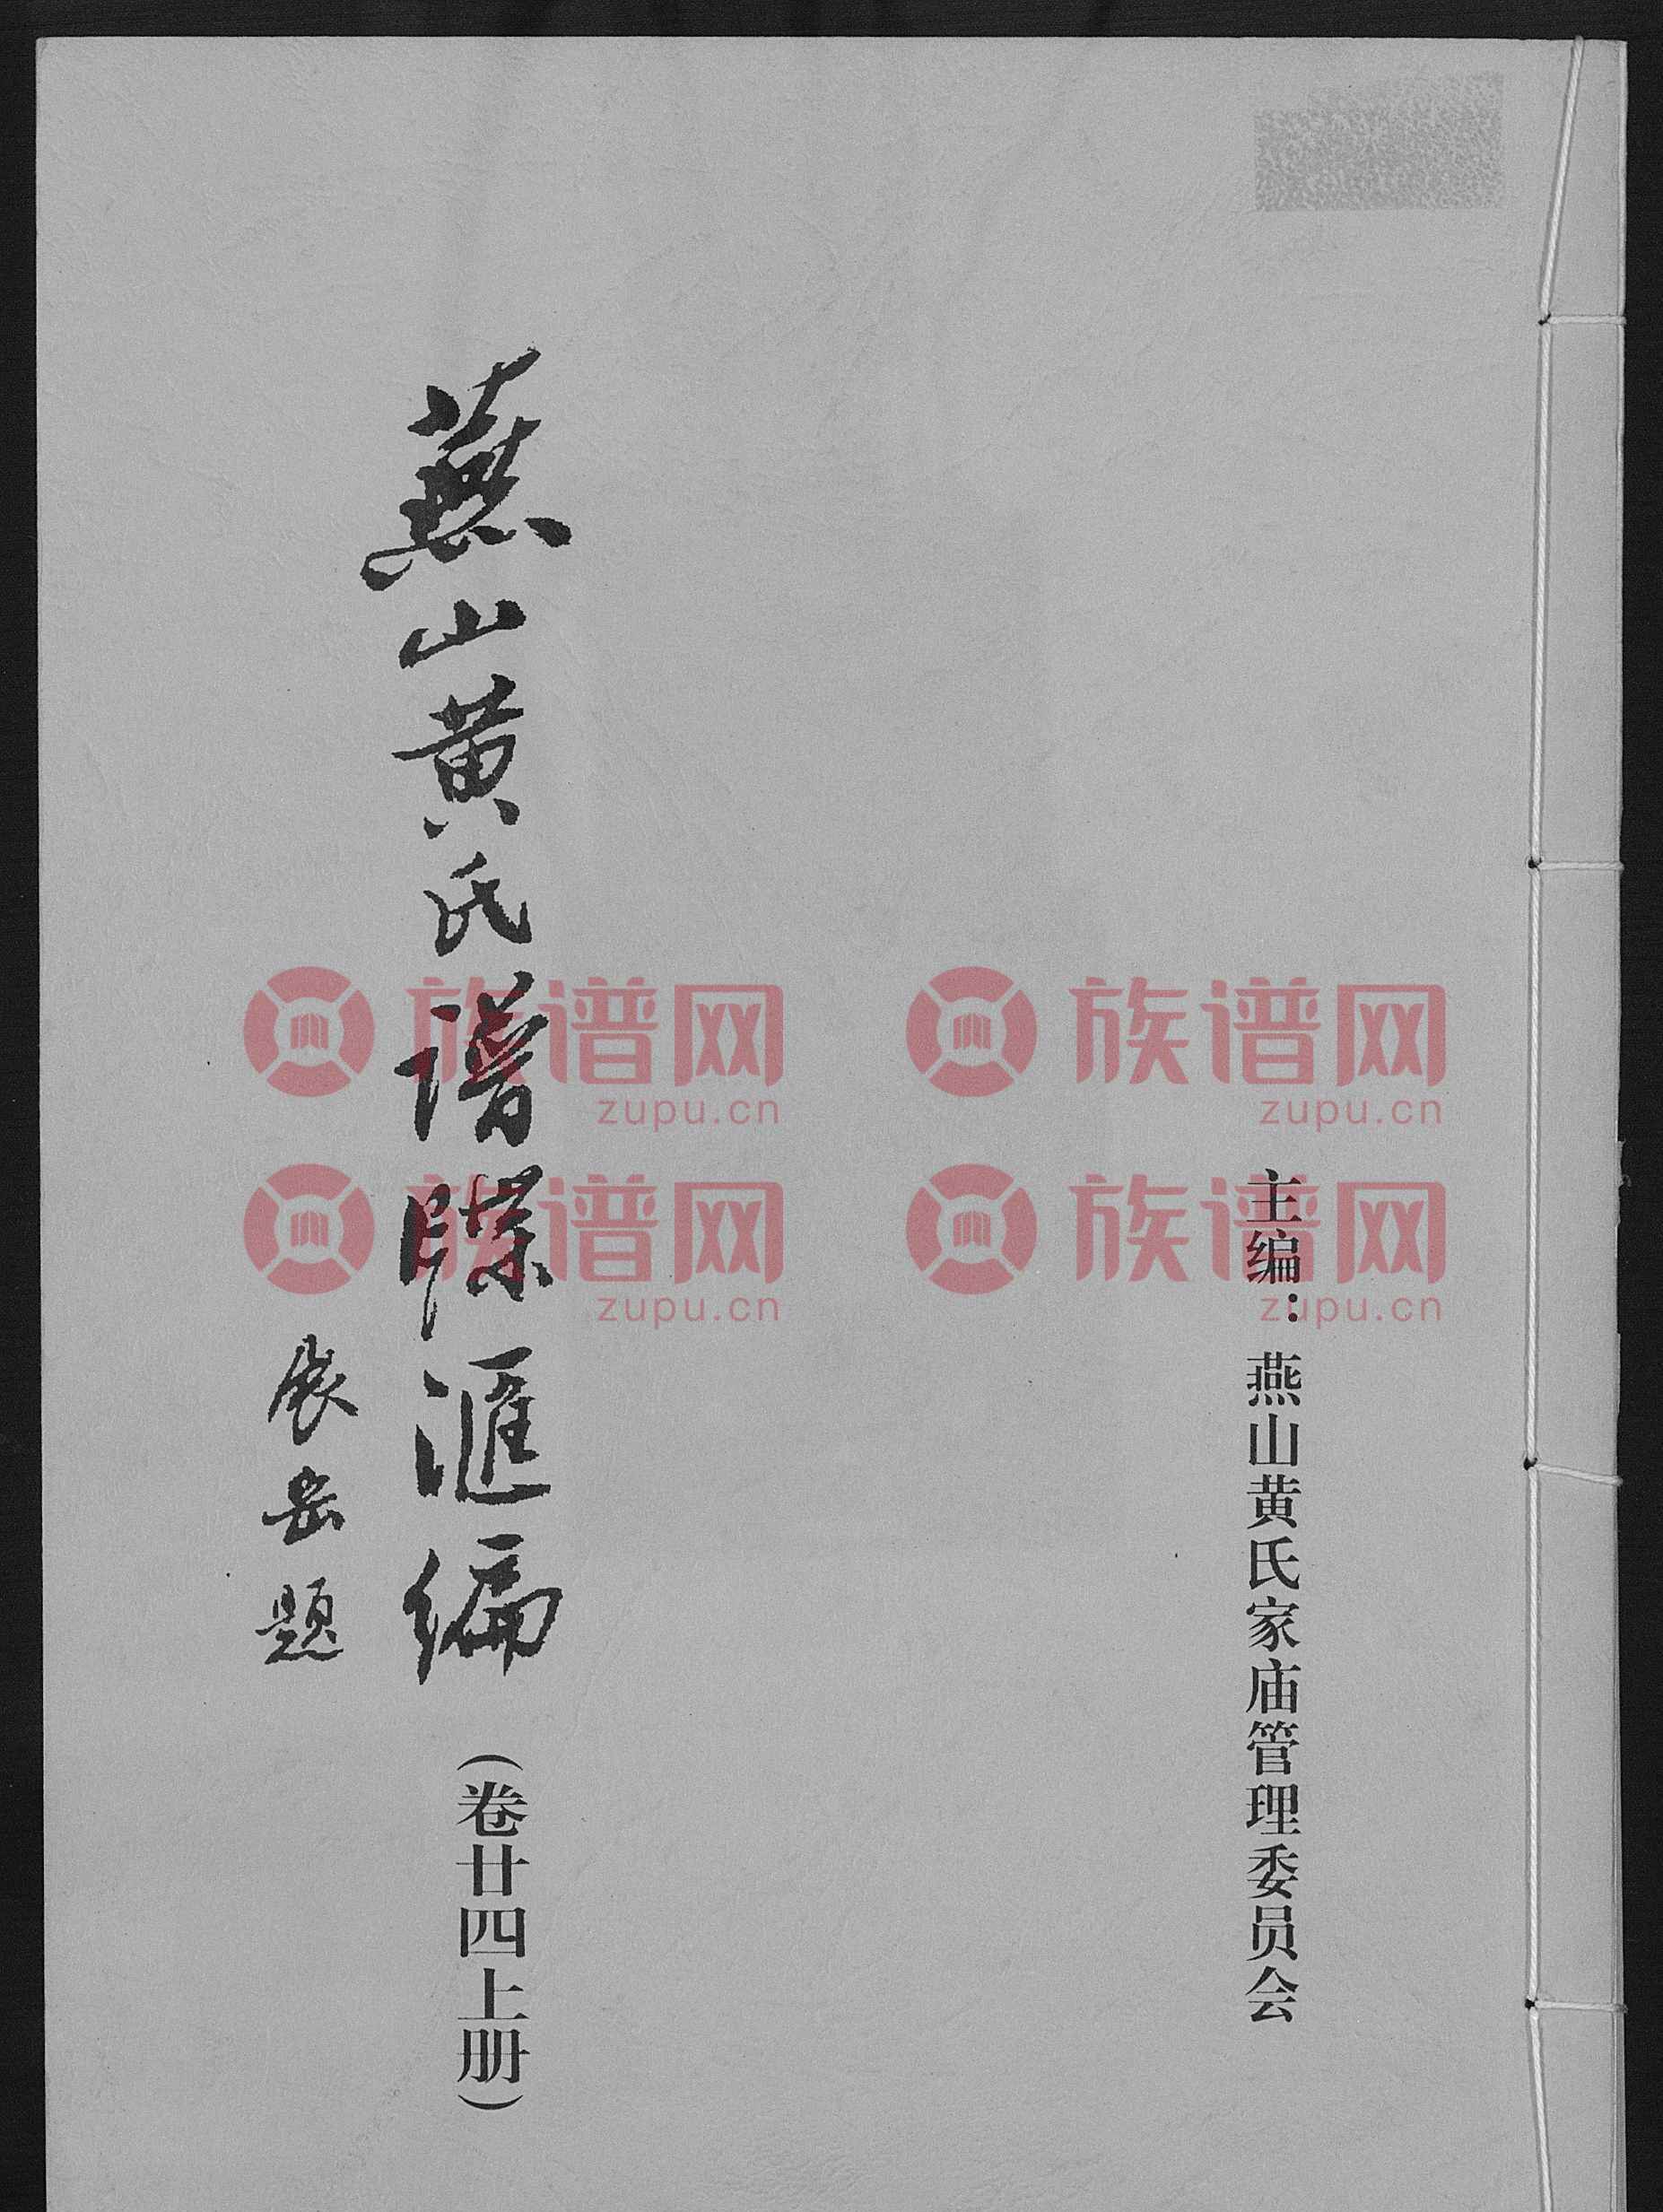 主编：燕山黄氏家庙管理委员会
燕山黄氏譜牒滙编
（卷廿四上册）
展岳题
族谱网
zupu.cn
族谱网
zupu.cn
族谱网
zupu.cn
族谱网
zupu.cn